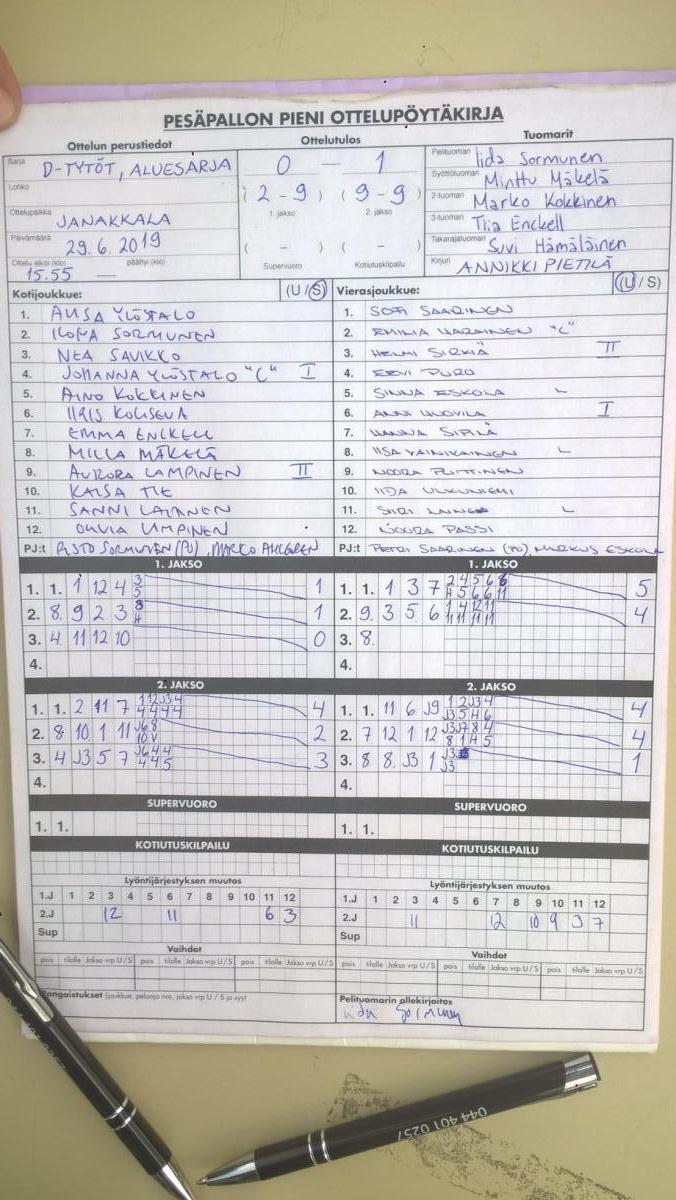 PESÄPALLON PIENI OTTELUPÖYTÄKIRJA
Ottelun perustiedot
Sarja D-TYTÖT, ALUESARJA
Lohko
Ottelupaikka JANAKKALA
Päivämäärä 29.6.2019
Ottelu alkoi (klo) 15.55 — päättyi (klo)
Ottelutulos
0 — 1
(2-9) (9-9)
1. jakso 2. jakso
( - ) ( - )
Supervuoro Kotiutuskilpailu
Tuomarit
Pelituomari Iida Sormunen
Syöttötuomari Minttu Mäkelä
2-tuomari Marko Kokkinen
3-tuomari Tiia Enckell
Takarajatuomari Suvi Hämäläinen
Kirjuri ANNIKKI PIETILÄ
Kotijoukkue: (U/S)
1. AMSA YLÖSTALO
2. ILONA SORMUNEN
3. NEA SAVIKKO
4. JOHANNA YLÖSTALO "C" I
5. AINO KOKKINEN
6. IIRIS
7. EMMA ENCKELL
8. MILLA MÄKELÄ
9. AURORA LAMPINEN II
10. KAISA TIE
11. SANNI LAIANEN
12. OLIVIA LAMPINEN
PJ:t RISTO SORMUNEN (PJ), MARKO AHLGREN
Vierasjoukkue: (U/S)
1. SOFI SAARINEN
2. EMILIA "C"
3. HELMI SIRKIÄ II
4. EEVI PURO
5. SINNA ESKOLA L
6. ANNI I
7. SIPILÄ
8. IISA VAINIKAINEN L
9. NOORA
10. IIDA ULKUNIEMI
11. SIIRI LAINE L
12. NOORA PASSI
PJ:t PETRI SAARINEN (PJ), MARKUS ESKOLA
1. JAKSO
1. 1. 1 12 4 3 5 1
2. 8. 9 2 3 1
3. 4. 11 12 10 0
4.
1. JAKSO
1. 1. 1 3 7 5
2. 9. 3 5 6 4
3. 8.
4.
2. JAKSO
1. 1. 2 11 7 4
2. 8 10 1 11 2
3. 4 J3 5 7 3
4.
2. JAKSO
1. 1. 11 6 J9 4
2. 7 12 1 12 4
3. 8 8. J3 1 1
4.
SUPERVUORO
1. 1.
SUPERVUORO
1. 1.
KOTIUTUSKILPAILU
KOTIUTUSKILPAILU
Lyöntijärjestyksen muutos
1.J 1 2 3 4 5 6 7 8 9 10 11 12
2.J 12 11 6 3
Sup
Lyöntijärjestyksen muutos
1.J 1 2 3 4 5 6 7 8 9 10 11 12
2.J 11 12 10 9 3 7
Sup
Vaihdot
pois tilalle Jakso vrp U/S pois tilalle Jakso vrp U/S
Vaihdot
pois tilalle Jakso vrp U/S pois tilalle Jakso vrp U/S
Rangaistukset (joukkue, pelaaja nro, jakso vrp U / S ja syy)
Pelituomarin allekirjoitus
Iida Sormunen
044 401 0257